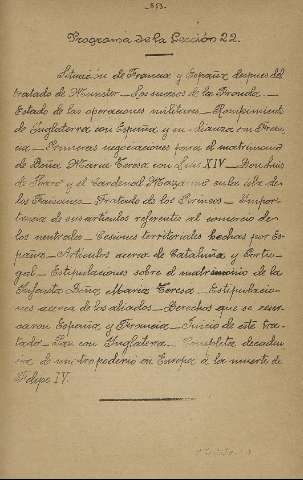 853.
Programa de la Lección 22.
Situación de Francia y España despues del
tratado de Munster — Los sucesos de la Fronda —
Estado de las operaciones militares — Rompimiento
de Inglaterra con España y su alianza con Fran-
cia — Primeras negociaciones para el matrimonio
de Doña Maria Teresa con Luis XIV — Don Luis
de Haro y el Cardenal Mazarino en la isla de
los Faisanes — Tratado de los Pirineos — Impor-
tancia de sus artículos referentes al comercio de
los neutrales — Cesiones territoriales hechas por Es-
paña — Artículos acerca de Cataluña y Portu-
gal — Estipulaciones sobre el matrimonio de la
Infanta Doña Maria Teresa — Estipulacio-
nes acerca de los aliados — Derechos que se reser-
varon España y Francia — Juicio de este tra-
tado — Paz con Inglaterra — Completa decaden-
cia de nuestro poderio en Europa á la muerte de
Felipe IV.